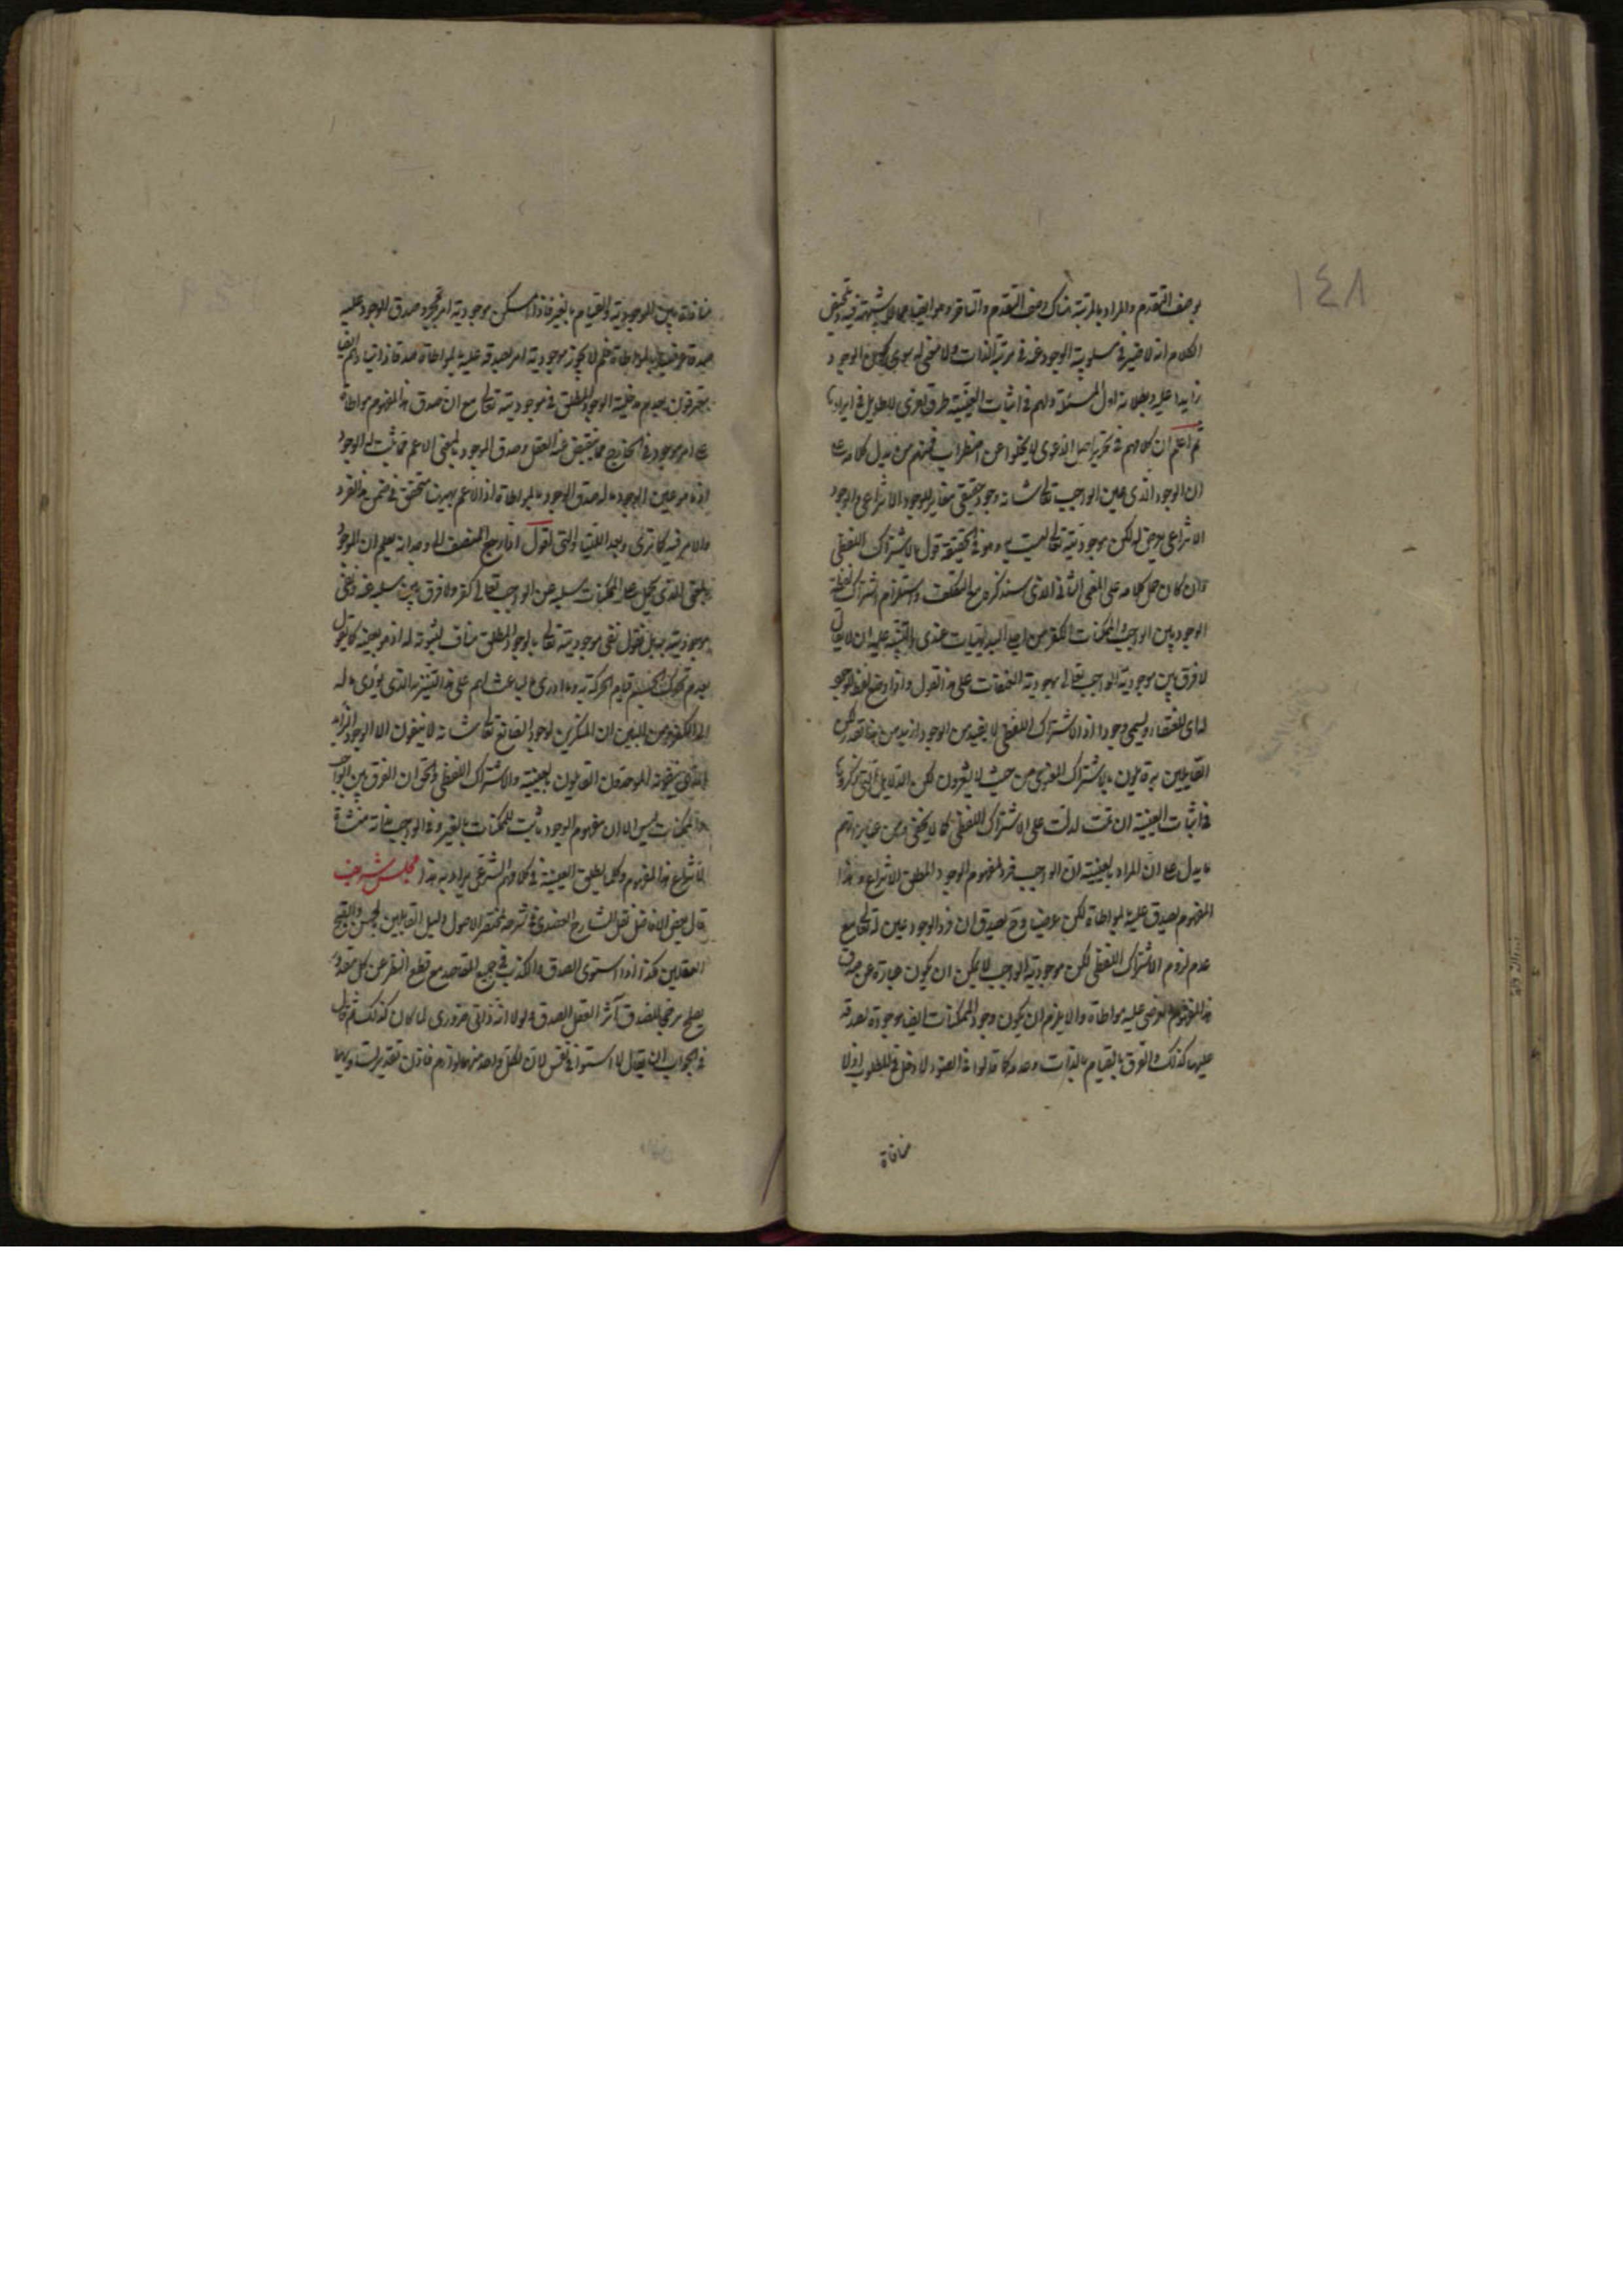 ١٤٨
بوصف التقدم والمراد بالمرتبة هناك وصف التقدم والتأخر وهو ايضا مما لا شبهة فيه وتحقيق
الكلام انه لا ضير في مسلوبية الوجود عنه في مرتبة الذات ولا معنى له سوى كون الوجود
زايدا عليه وبطلانه اول المسئلة ولهم في اثبات العينية طرق اخرى لا طويل في ايرادها
ثم اعلم ان كلامهم في تحرير اصل الدعوى لا يخلوا عن اضطراب فمنهم من يدل كلامه على
ان الوجود الذي عين الواجب تعالى شانه وجود حقيقي مغاير للوجود الانتزاعي والوجود
الانتزاعي عرضي له لكن موجوديته تعالى ليست به وهو في الحقيقة قول بالاشتراك اللفظي
وان كان حمل كلامه على المعنى الثاني الذي سنذكره مع التكلف واستلزام اشتراك لفظة
الوجود بين الواجب والممكنات الكفر من اجلى البديهيات عندي والتنبيه عليه ان لا يقال
لا فرق بين موجودية الواجب تعالى وموجودية الممتنعات على هذا القول واذا وضع لفظ الوجود
لها اي للعنقاء ويسمى وجودا اذ الاشتراك اللفظي لا يفيد من الوجود ازيد من هذا القدر لكن
القايلين به قايلون بالاشتراك المعنوي من حيث لا يشعرون لكن الدلايل التي ذكروها
في اثبات العينية ان تمت لدلت على الاشتراك اللفظي كما لا يخفى ومن عباراتهم
ما يدل على ان المراد بالعينية ان الواجب فرد لمفهوم الوجود المطلق الانتزاعي وهذا
المفهوم يصدق عليه بالمواطاة لكن عرضيا وح يصدق ان فرد الوجود عين له تعالى مع
عدم لزوم الاشتراك اللفظي لكن موجودية الواجب لا يمكن ان يكون عبارة عن صدق
هذا المفهوم العرضي عليه مواطاة والا يلزم ان يكون وجود الممكنات ايضا موجودة لصدقه
عليها كذلك والفرق بالقيام بالذات وعدمه كما قالوا في الضوء لا دخل في المطلوب اذ لا
منافاة
منافاة بين الموجودية والقيام بالغير فاذا امكن موجودية امر بمجرد صدق الوجود عليه
صدقا عرضيا بالمواطاة فلم لا يجوز موجودية امر يصدقه عليه بالمواطاة صدقا ذاتيا وهم ايضا
يعترفون بعدم مدخلية الوجود المطلق في موجوديته تعالى مع ان صدق هذا المفهوم مواطاة
على امر موجود في الخارج مما ينقبض عنه العقل وصدق الوجود بالمعنى الاعم مما ثبت له الوجود
او ما هو عين الوجود ما له صدق الوجود بالمواطاة اذ الاعم يهبنا متحقق في ضمن هذا الفرد
والامر فيه كما ترى وبعد اللتيا والتي نقول اذا رجع المنصف الى وجدانه يعلم ان الوجود
بالمعنى الذي يحمل على الممكنات سلبه عن الواجب تعالى كفر ولا فرق بين سلبه عنه ونفي
موجوديته به بل نقول نفي موجوديته تعالى بالوجود المطلق مناف لثبوته له اذ هو بعينه كما يقول
بعدم تحرك الجسم بقيام الحركة به وما ادري ما الباعث لهم على هذا التنزيه الذي يؤدي ماله
الى الكفر ومن البين ان المنكرين لوجود الصانع تعالى شانه لا ينفون الا الوجود الذي
الذي ينفونه الموحدون القايلون بالعينية والاشتراك اللفظي والحق ان الفرق بين الواجب
والممكنات ليس الا ان مفهوم الوجود ثابت للممكنات بالغير وفي الواجب ذاته منشاة
لانتزاع هذا المفهوم وكلما يطلق العينية في كلام اهل الشرع يراد به هذا مجلس شريف
قال بعض الافاضل نقل الشارح العضدي في شرحه لمختصر الاصول دليل القايلين بالحسن والقبح
العقليين هكذا اذا استوى الصدق والكذب في جميع المقاصد مع قطع النظر عن كل مقدور
يصلح مرجحا للصدق آثر العقل الصدق ولولا انه ذاتي ضروري لما كان كذلك ثم قال
في الجواب ان يقال لا استواء في نفس لان لكل واحد منهما لوازم فاذن تقدير تساويهما